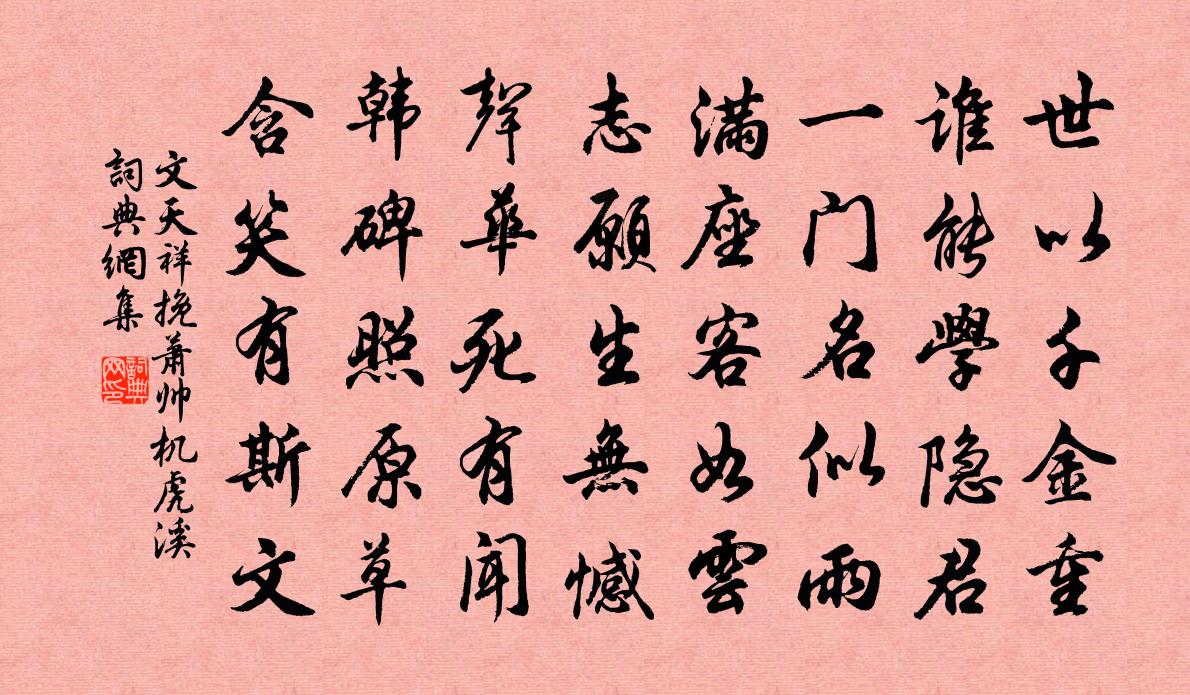 世以千金重
谁能學隐君
一门名似雨
满座客如雲
志願生無憾
聲華死有聞
韩碑照原草
含笑有斯文
文天祥挽萧帅机虎溪
詞典網集
詞典网印